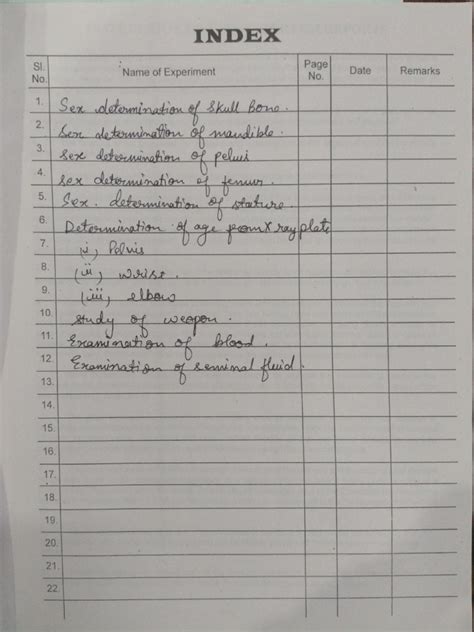 INDEX
Sl. No. Name of Experiment Page No. Date Remarks
1. Sex determination of skull Bone.
2. Sex determination of mandible.
3. sex determination of pelvis
4. sex determination of femur.
5. Sex. determination of stature.
6. Determination of age from X ray plate
7. (i), Pelvis
8. (ii), wrise.
9. (iii), elbow
10. study of weapon.
11. Examination of blood.
12. Examination of seminal fluid.
13.
14.
15.
16.
17.
18.
19.
20.
21.
22.